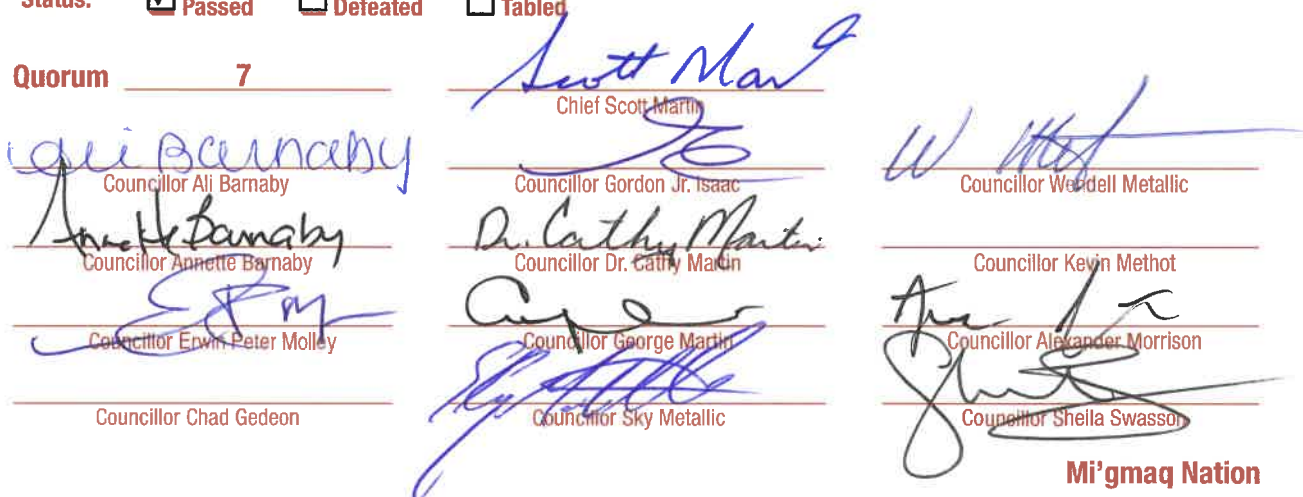 Status: ☑ Passed ☐ Defeated ☐ Tabled
Quorum 7
Scott Mar
Chief Scott Martin
Ali Barnaby
Councillor Ali Barnaby
Councillor Gordon Jr. Isaac
W Met
Councillor Wendell Metallic
Annette Barnaby
Councillor Annette Barnaby
Dr. Cathy Martin
Councillor Dr. Cathy Martin
Councillor Kevin Methot
Councillor Erwin Peter Molley
Councillor George Martin
Councillor Alexander Morrison
Councillor Chad Gedeon
Councillor Sky Metallic
Councillor Sheila Swasson
Mi'gmaq Nation